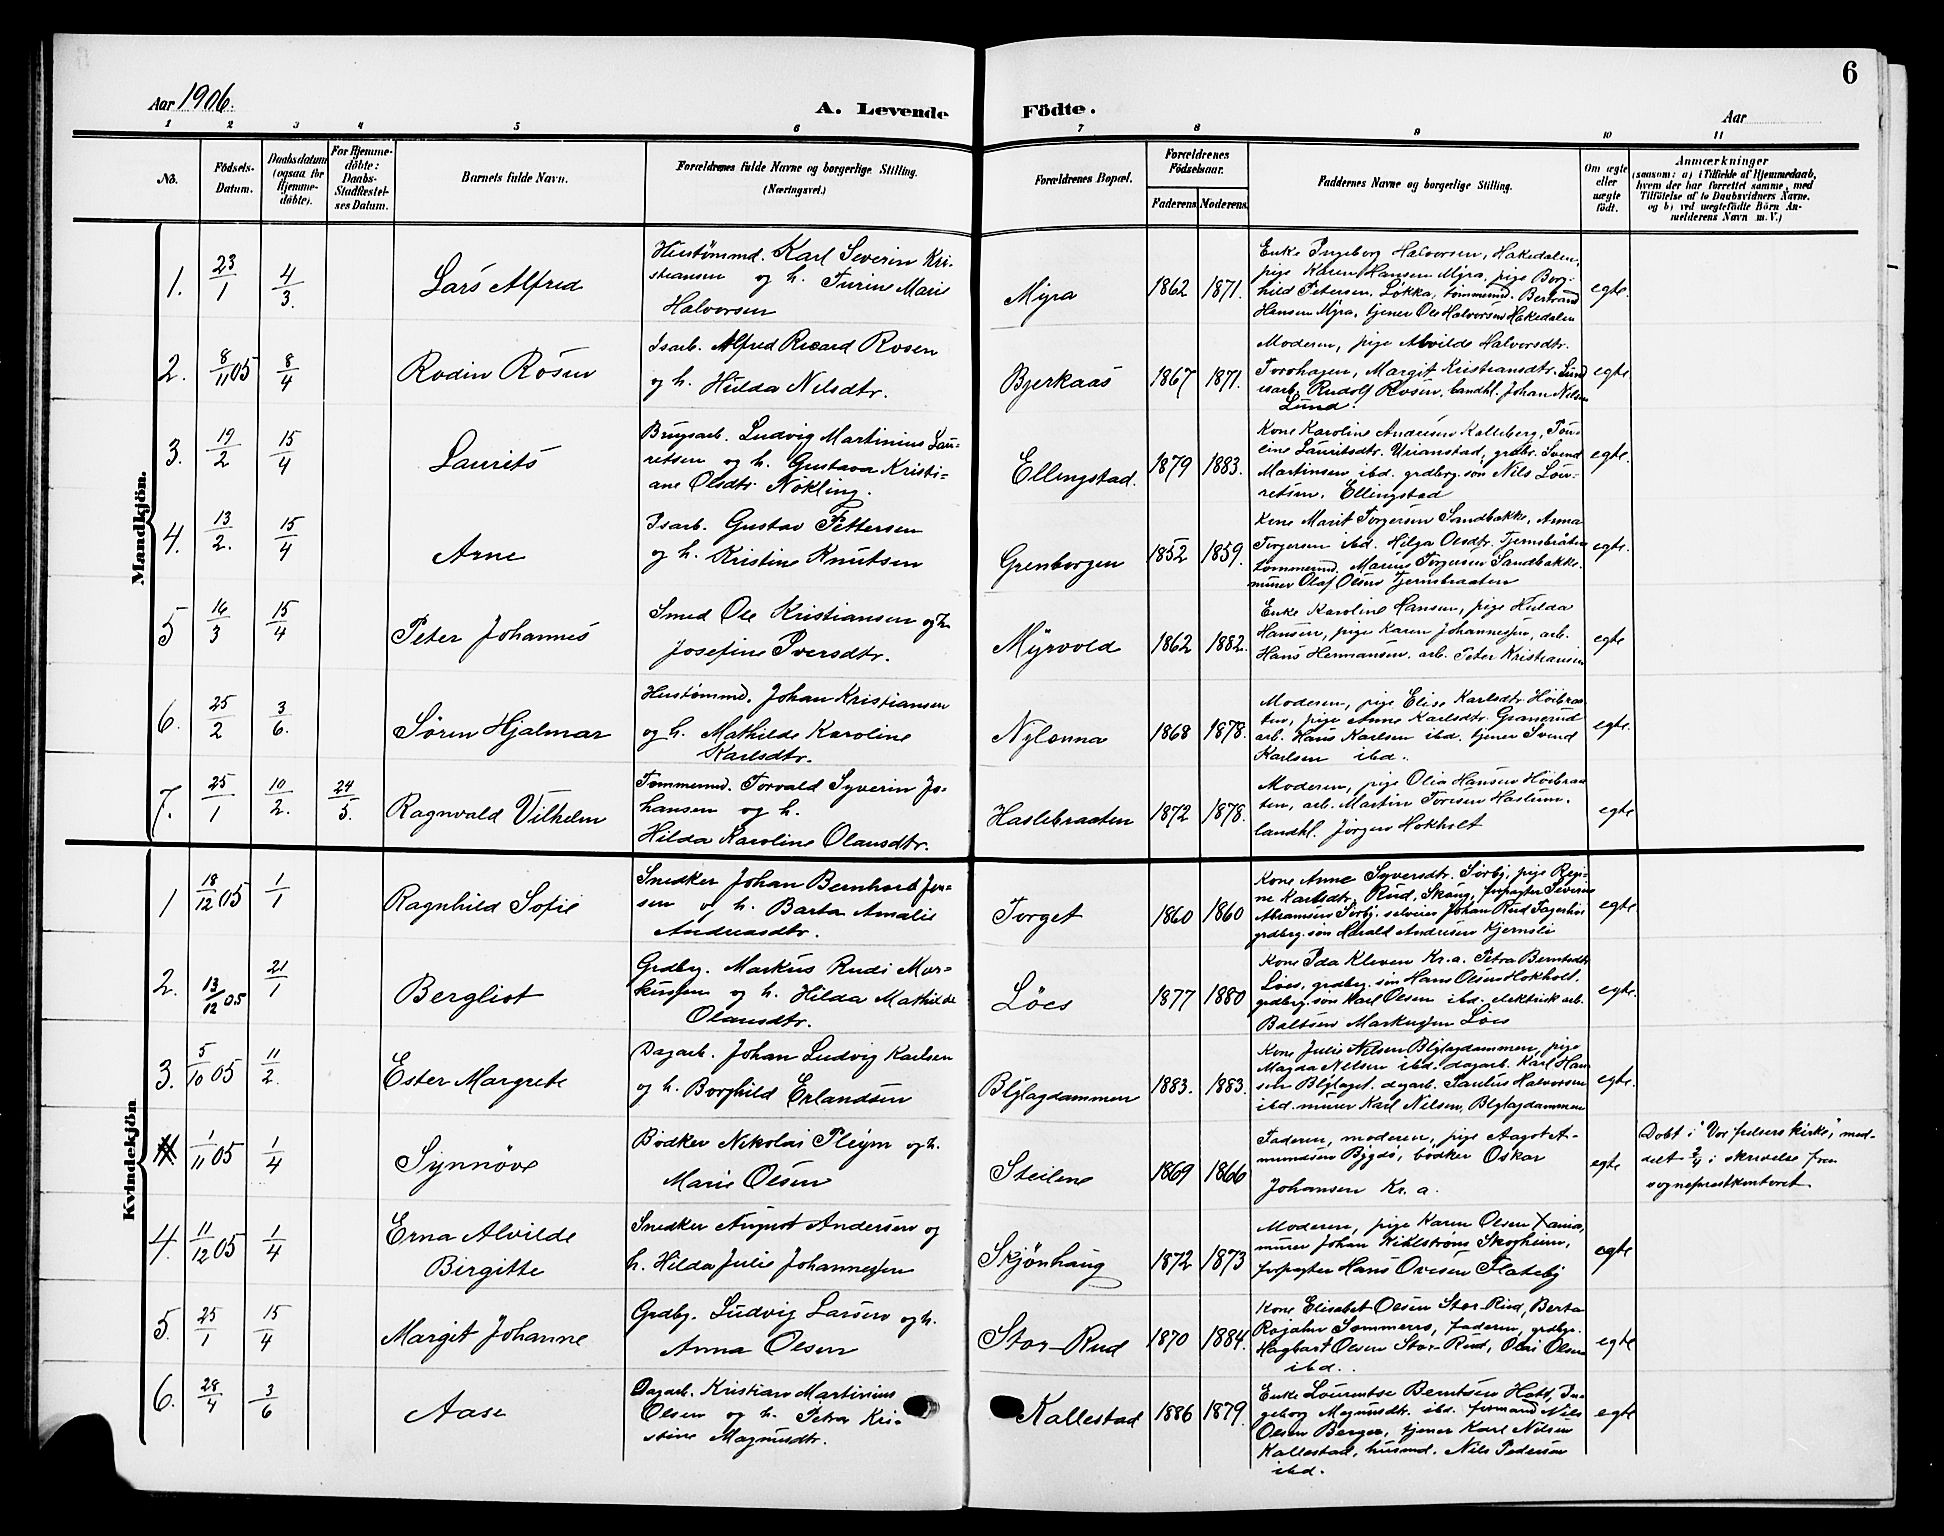 Aar 1906.
A. Levende Födte.
Aar
6
1 2 3 4 5 6 7 8 9 10 11
No.
Födsels-
Datum.
Daabsdatum
(ogsaa for
Hjemme-
döbte).
For Hjemme-
döbte:
Daabs-
Stadfæstel-
ses Datum.
Barnets fulde Navn.
Forældrenes fulde Navne og borgerlige Stilling.
(Næringsvei.)
Forældrenes Bopæl.
Forældrenes
Födselsaar.
Faderens. Moderens.
Faddernes Navne og borgerlige Stilling.
Om ægte
eller
uægte
födt.
Anmærkninger
(saasom: a) i Tilfælde af Hjemmedaab,
hvem der har forrettet samme, med
Tilföielse af to Daabsvidners Navne.
og b) ved uægtefödte Börn An-
melderens Navn m. V.)
Mandkjön.
1. 23/1 4/3. Lars Alfred
Hustømmd. Karl Severin Kri-
stiansen og h. Turine Marie
Halvorsen
Myra 1862 1871.
Enke Ingeborg Halvorsen, Hakedalen,
pige Karen Hansen Myra, pige Borg-
hild Petersen, Løkka, tømmermd. Bertrand
Hansen Myra, tjener Ole Halvorsen Hakedalen
egte.
2. 8/11 05 8/4 Rodin Rosen
Isarb. Alfred Ricard Rosen
og h. Hulda Nilsdtr.
Bjerkaas 1867 1871.
Moderen, pige Alvilde Halvorsdtr.
Torohagen, Margit Kristiansdtr. Lund
isarb. Rudolf Rosen, landhl. Johan Nilsen
Lund.
egte
3. 19/2 15/4 Laurits
Brugsarb. Ludvig Martinius Lau-
ritsen og h. Gustava Kristi-
ane Olsdtr. Nökling.
Ellingstad. 1879 1883.
Kone Karoline Andersen Kalleberg,
Lauritsdtr. Urianstad, grdbr. Svend
Martinsen ibd. grdbrg. søn Nils Lau-
ritsen, Ellingstad
egte.
4. 13/2. 15/4 Arne
Isarb. Gustav Pettersen
og h. Kristine Knutsen
Grenborgen 1852 1859.
Kone Marit Torgersen Sandbakke, Anna
Torgersen ibd. Helga Olsdtr. Tjernsbråten
tømmermd. Marius Torgersen Sandbakke.
murer Olaf Olsen Tjernsbraaten
egte.
5 16/3 15/4 Peter Johannes
Smed Ole Kristiansen og h.
Josefine Iversdtr.
Myrvold 1862 1882.
Enke Karoline Hansen, pige Hulda
Hansen, pige Karen Johannessen, arb.
Hans Hermansen, arb. Peter Kristiansen
egte
6. 25/2 3/6. Søren Hjalmar
Hustømmd. Johan Kristiansen
og h. Mathilde Karoline
Karlsdtr.
Nylænna 1868 1878.
Moderen, pige Elise Karlsdtr. Høibraa-
ten, pige Anne Karlsdtr. Granerud
arb. Hans Karlsen ibd. tjener Svend
Karlsen ibd.
egte.
7. 25/1 10/2. 24/5. Ragnvald Vilhelm
Tømmermd. Torvald Syverin Jo-
hansen og h.
Hilda Karoline Olausdtr.
Haslebraaten 1872 1878.
Moderen, pige Olia Hansen Høibraa-
ten, arb. Martin Toresen Haslum.
landhl. Jørgen Hokholt
egte
Kvindekjön
1 18/12 05 1/1 Ragnhild Sofie
Snedker Johan Bernhard Jen-
sen og h. Barta Amalie
Andreasdtr.
Torget 1860 1860
Kone Anne Syversdtr. Sørby, pige Regi-
ne Karlsdtr. Rud, Skaug, forpagter Severin
Abramsen Sørby. selveier Johan Rud Fagerhøi
grdbrg. søn Harald Andersen Kjernsli
egte
2. 13/12 05 21/1 Bergliot
Grdbr. Markus Rudi Mar-
kussen og h. Hilda Mathilde
Olausdtr.
Löes 1877 1880
Kone Ida Kleven Kr.a. Petra Berntsdtr
Löes, grdbrg. søn Hans Olsen Hokholt.
grdbrg. søn Karl Olsen ibd. elektrisk arb.
Baltsen Markussen Löes
egte.
3. 5/10 05 11/2. Ester Margrete
Dagarb. Johan Ludvig Karlsen
og h. Borghild Erlandsen
Blylagdammen 1883. 1883.
Kone Julie Nilsen Blylagdammen, pige
Magda Nilsen ibd. dagarb. Karl Han-
sen Blylaget. dagarb. Paulus Halvorsen
ibd. murer Karl Nilsen, Blylagdammen
egte.
1/11 05 1/4 Synnöve
Bødker Nikolai Pleym og h.
Marie Olsen
Steilene 1869 1866
Faderen, moderen, pige Aagot A-
mundsen Bygdö, bødker Oskar
Johansen Kr.a.
egte
Døbt i "Vor frelsers kirke", med-
delt 2/4 i skrivelse fra
sogneprestkontoret
4. 11/12 05 1/4 Erna Alvilde
Birgitte
Snedker August Andersen og
h. Hilda Julie Johannessen
Skjønhaug 1872 1873
Moderen, pige Karen Olsen Xania,
murer Johan Kihlstrøm Skogheim,
forpagter Hans Ovesen Flateby
egte
5. 25/1 15/4 Margit Johanne
Grdbr. Ludvig Larsen og h.
Anna Olsen
Stor-Rud 1870 1884.
Kone Elisabet Olsen Stor-Rud, Berta
Rojahn Sommerro, faderen, grdbr.
Hagbart Olsen Stor-Rud, Olai Olsen
ibd.
egte
6. 28/4 3/6 Aase
Dagarb. Kristian Martinius
Olsen og h. Petra Kri-
stine Magnusdtr.
Kallestad 1886 1879.
Enke Lourentse Berntsen Hatt, In-
geborg Magnusdtr. ibd. formand Nils
Olsen Berger, tjener Karl Nilsen
Kallestad, husmd. Nils Pedersen
ibd.
egte